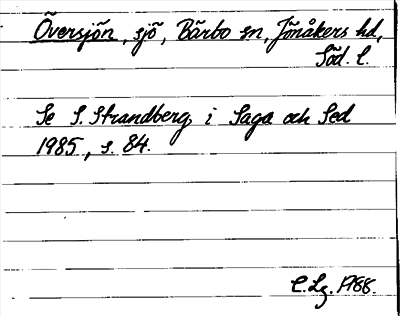 Översjön, sjö, Bärbo sn, Jönåkers hd,
Söd. l.
Se S. Strandberg i Saga och Sed
1985, s. 84.
C. Lg. 1988.